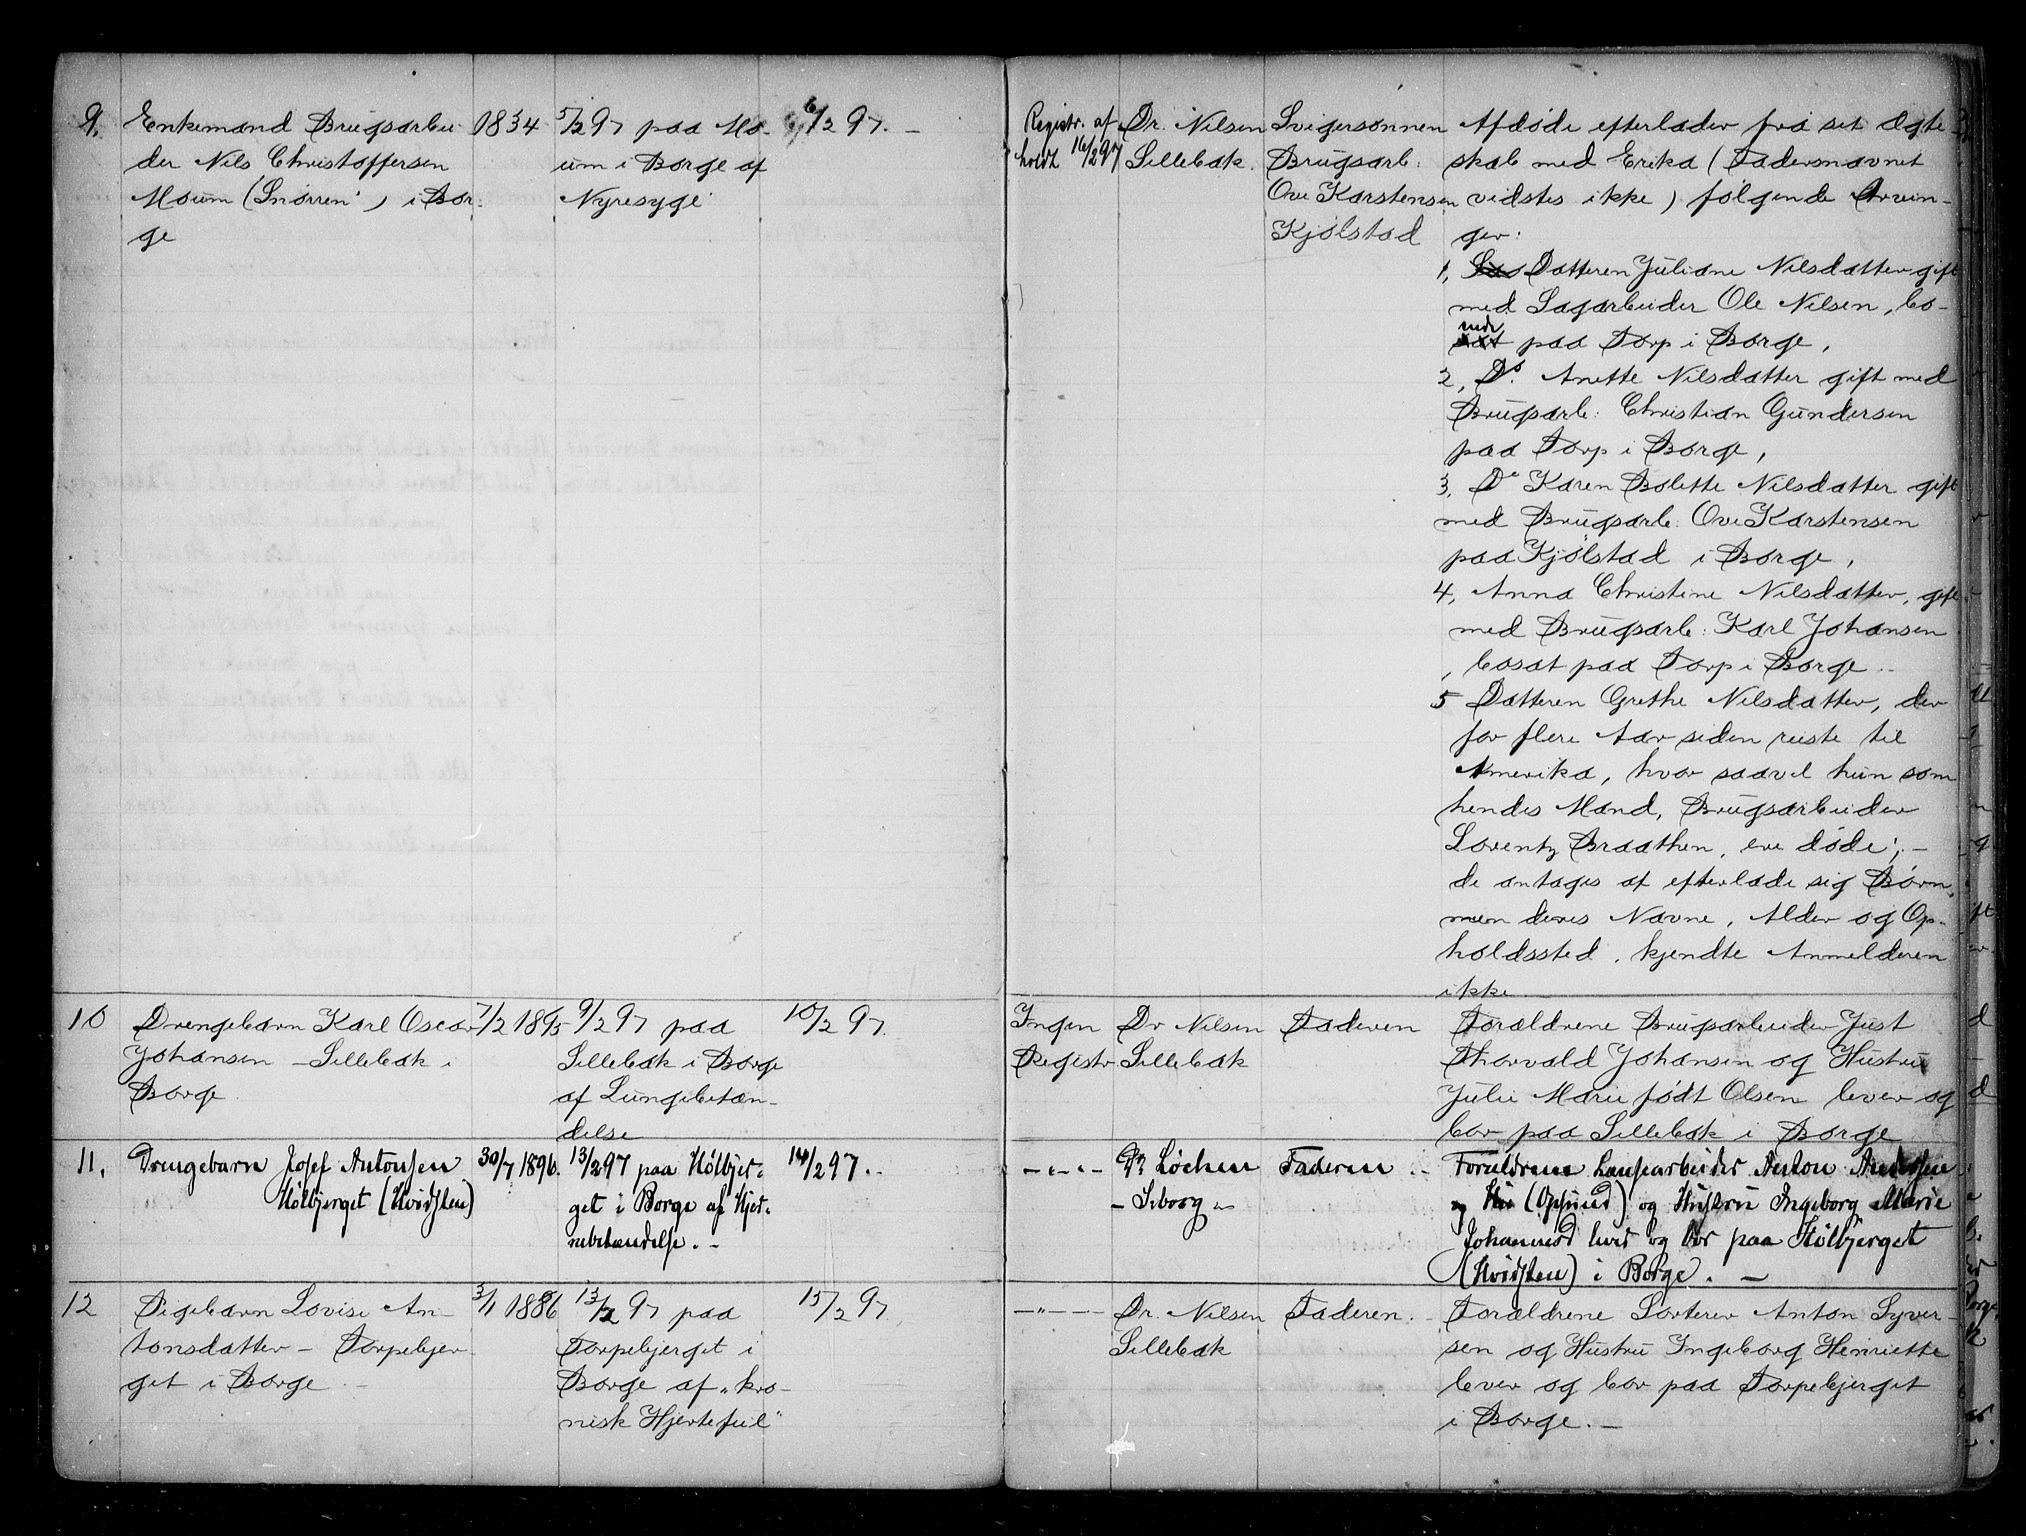 9. Enkemand Brugsarbei- 1834 5/2 97 paa Mo- 6/2 97. –
der Nils Christoffersen um i Borge af
Moum (Snørren), i Bor- Nyresyge
ge
Registr. af- Dr. Nilsen Svigersønnen Afdøde efterlader fra sit Ægte
holdt 16/2 97 Sellebak. Brugsarb: skab med Erika (Fadersnavnet
Ove Karstensen vidstes ikke) følgende Arvin-
Kjølstad ger:
1, Datteren Juliane Nilsdatter gift
med Sagarbeider Ole Nilsen, bo-
ende paa Torp i Borge,
2, Do. Anette Nilsdatter gift med
Brugsarb: Christian Gundersen
paa Torp i Borge,
3, Do Karen Bolette Nilsdatter gift
med Brugsarb: Ove Karstensen
paa Kjølstad i Borge,
4, Anna Christine Nilsdatter, gift
med Brugsarb: Karl Johansen
, bosat paa Torp i Borge –
5 Datteren Grethe Nilsdatter, der
for flere Aar siden reiste til
Amerika, hvor saavel hun som
hendes Mand, Brugsarbeider
Lorentz Braathen, ere døde; –
de antages at efterlade sig Børn,
men deres Navne, Alder og Op-
holdssted, kjendte Anmelderen
ikke
10 Drengebarn Karl Oscar 7/2 1895 9/2 97 paa 10/2 97.
Johansen – Sellebak i Sellebak i Borge
Borge af Lungebetæn-
delse
Ingen Dr Nilsen Faderen Forældrene Brugsarbeider Just
Registr Sellebak Thorvald Johansen og Hustru
Julie Marie født Olsen lever og
bor paa Sellebak i Borge
11. Drengebarn Josef Antonsen 30/7 1896. 13/2 97 paa Hølbjer- 14/2 97. –
Hølbjerget (Hvidsten) get i Borge af Hjer-
nebetændelse. –
– „ – Dr. Løchen Faderen – Forældrene Lænsearbeider Anton Andersen
– Seborg – og (Opsund) og Hustru Ingeborg Marie
Johannesd lever og bor paa Hølbjerget
(Hvidsten) i Borge. –
12 Pigebarn Lovise An- 3/1 1886 13/2 97 paa 15/2 97
tonsdatter – Torpebjer- Torpebjerget i
get i Borge – Borge af „kro-
nisk Hjertefeil"
– „ – – Dr. Nilsen Faderen. – Forældrene Sorterer Anton Syver-
Sellebak sen og Hustru Ingeborg Henriette
lever og bor paa Torpebjerget
i Borge. –